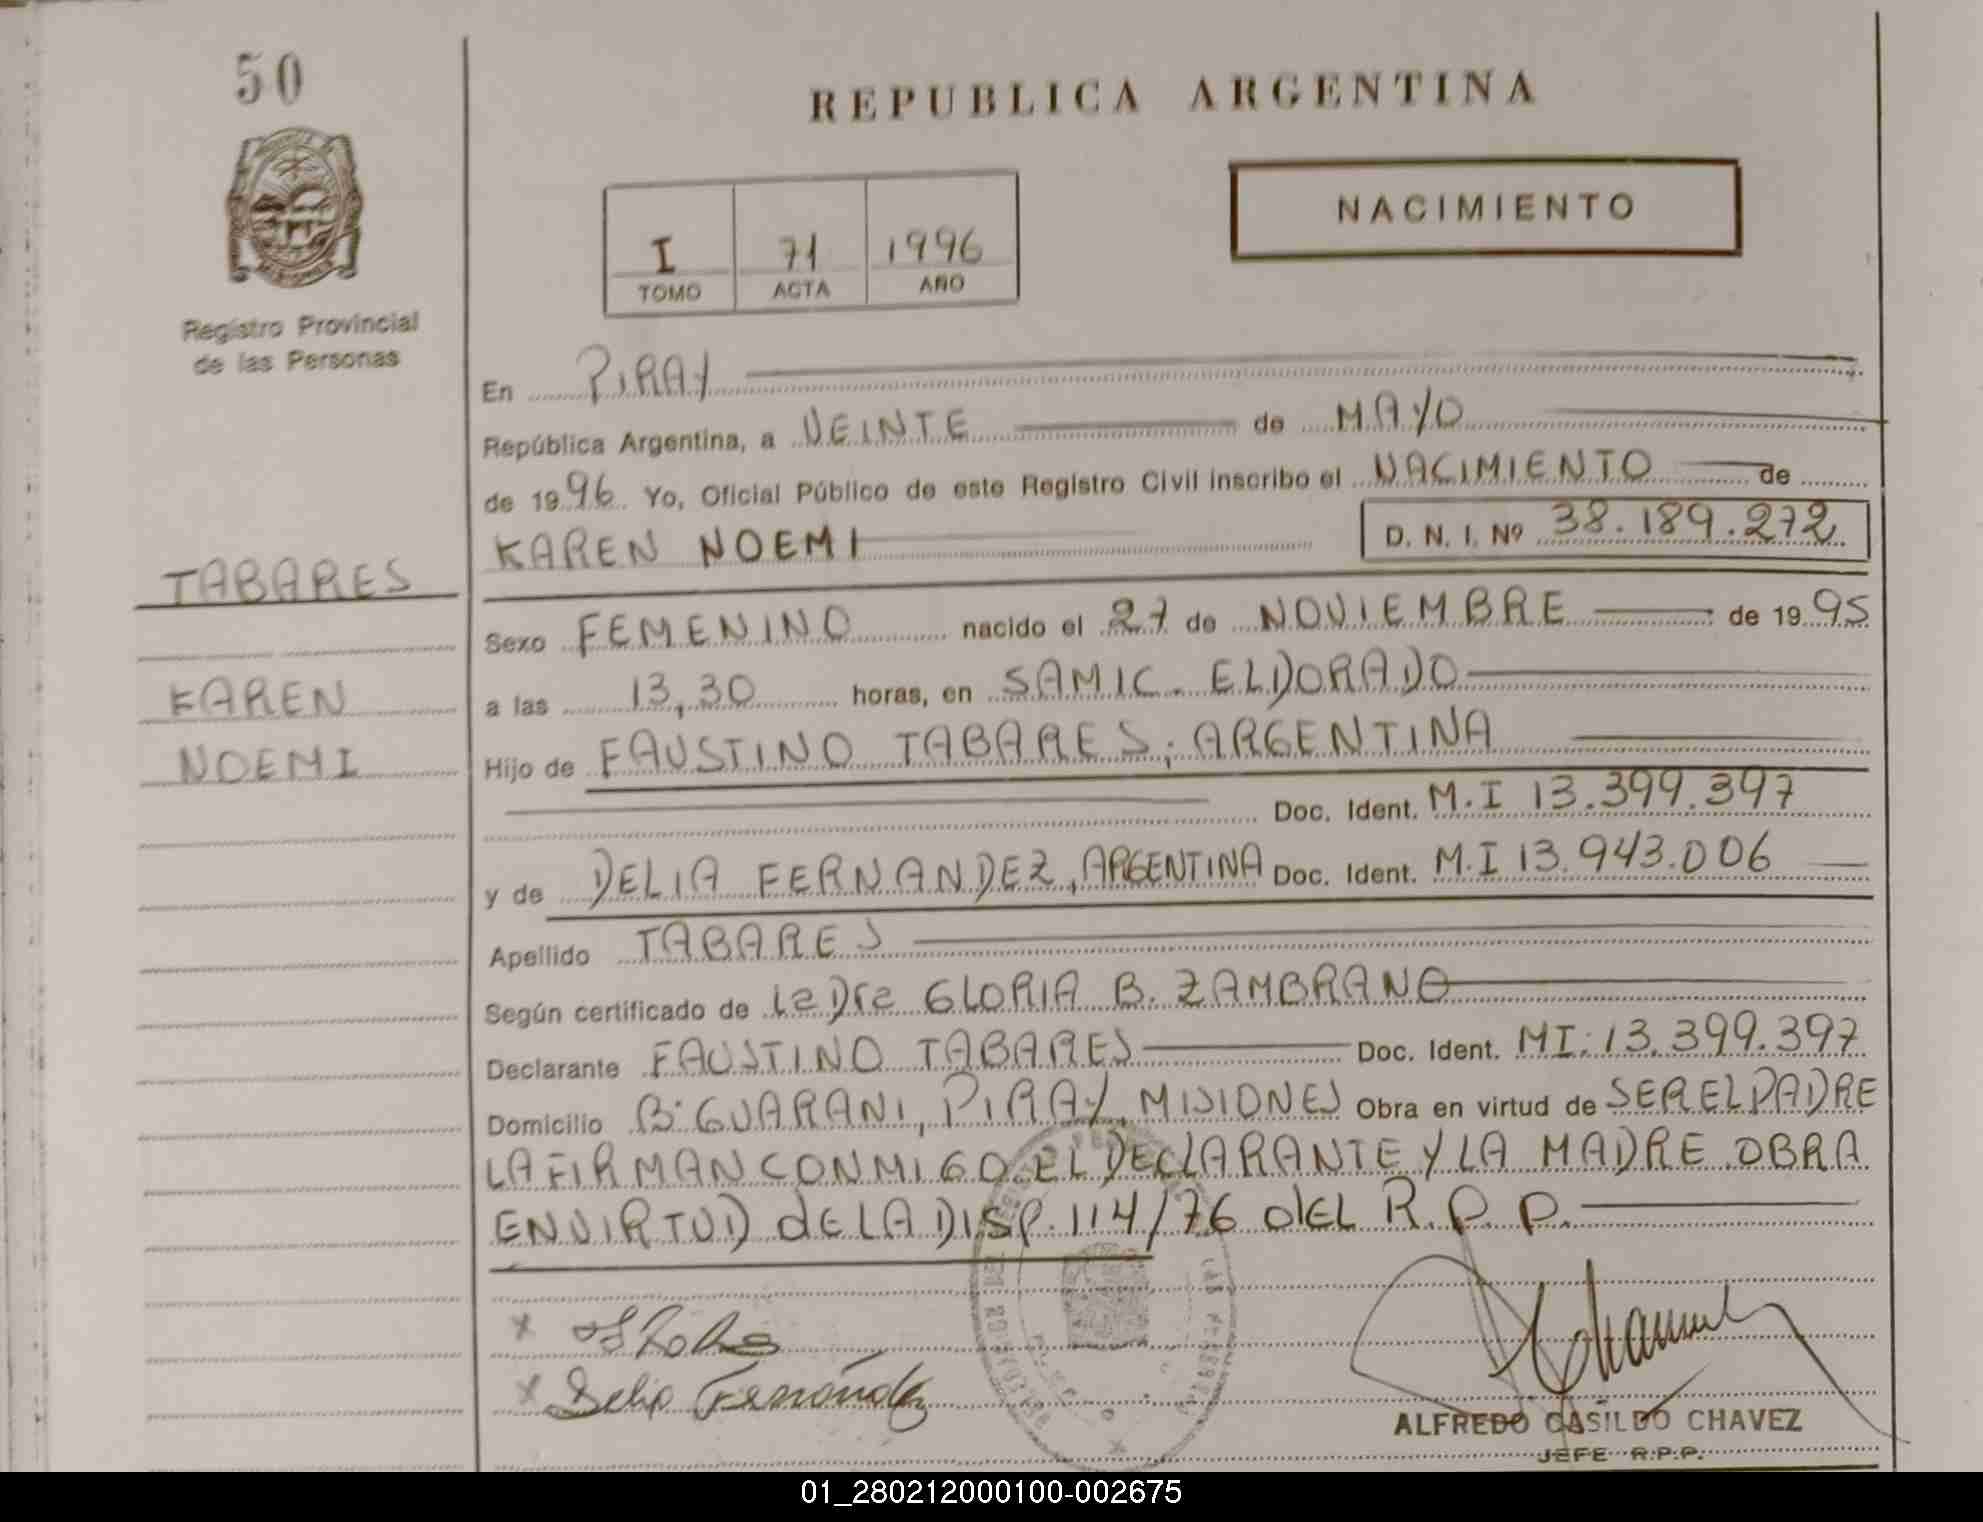 50
REPUBLICA ARGENTINA
NACIMIENTO
I 71 1996
TOMO ACTA AÑO
Registro Provincial
de las Personas
En PIRAY
República Argentina, a VEINTE de MAYO
de 1996 Yo, Oficial Público de este Registro Civil inscribo el NACIMIENTO de
KAREN NOEMI D. N. I. Nº 38.189.272
TABARES
KAREN
NOEMI
Sexo FEMENINO nacido el 27 de NOVIEMBRE de 1995
a las 13,30 horas, en SAMIC. ELDORADO
Hijo de FAUSTINO TABARES, ARGENTINA
Doc. Ident. M.I 13.399.397
y de DELIA FERNANDEZ, ARGENTINA Doc. Ident. M.I 13.943.006
Apellido TABARES
Según certificado de la Dra GLORIA B. ZAMBRANO
Declarante FAUSTINO TABARES Doc. Ident. MI: 13.399.397
Domicilio Bº GUARANI, PIRAY, MISIONES Obra en virtud de SER EL PADRE
LA FIRMAN CONMIGO EL DECLARANTE Y LA MADRE. OBRA
EN VIRTUD dE LA DISP. 114/76 dEL R.P.P.
x
x Delia Fernández
ALFREDO CASILDO CHAVEZ
JEFE R.P.P.
01_280212000100-002675